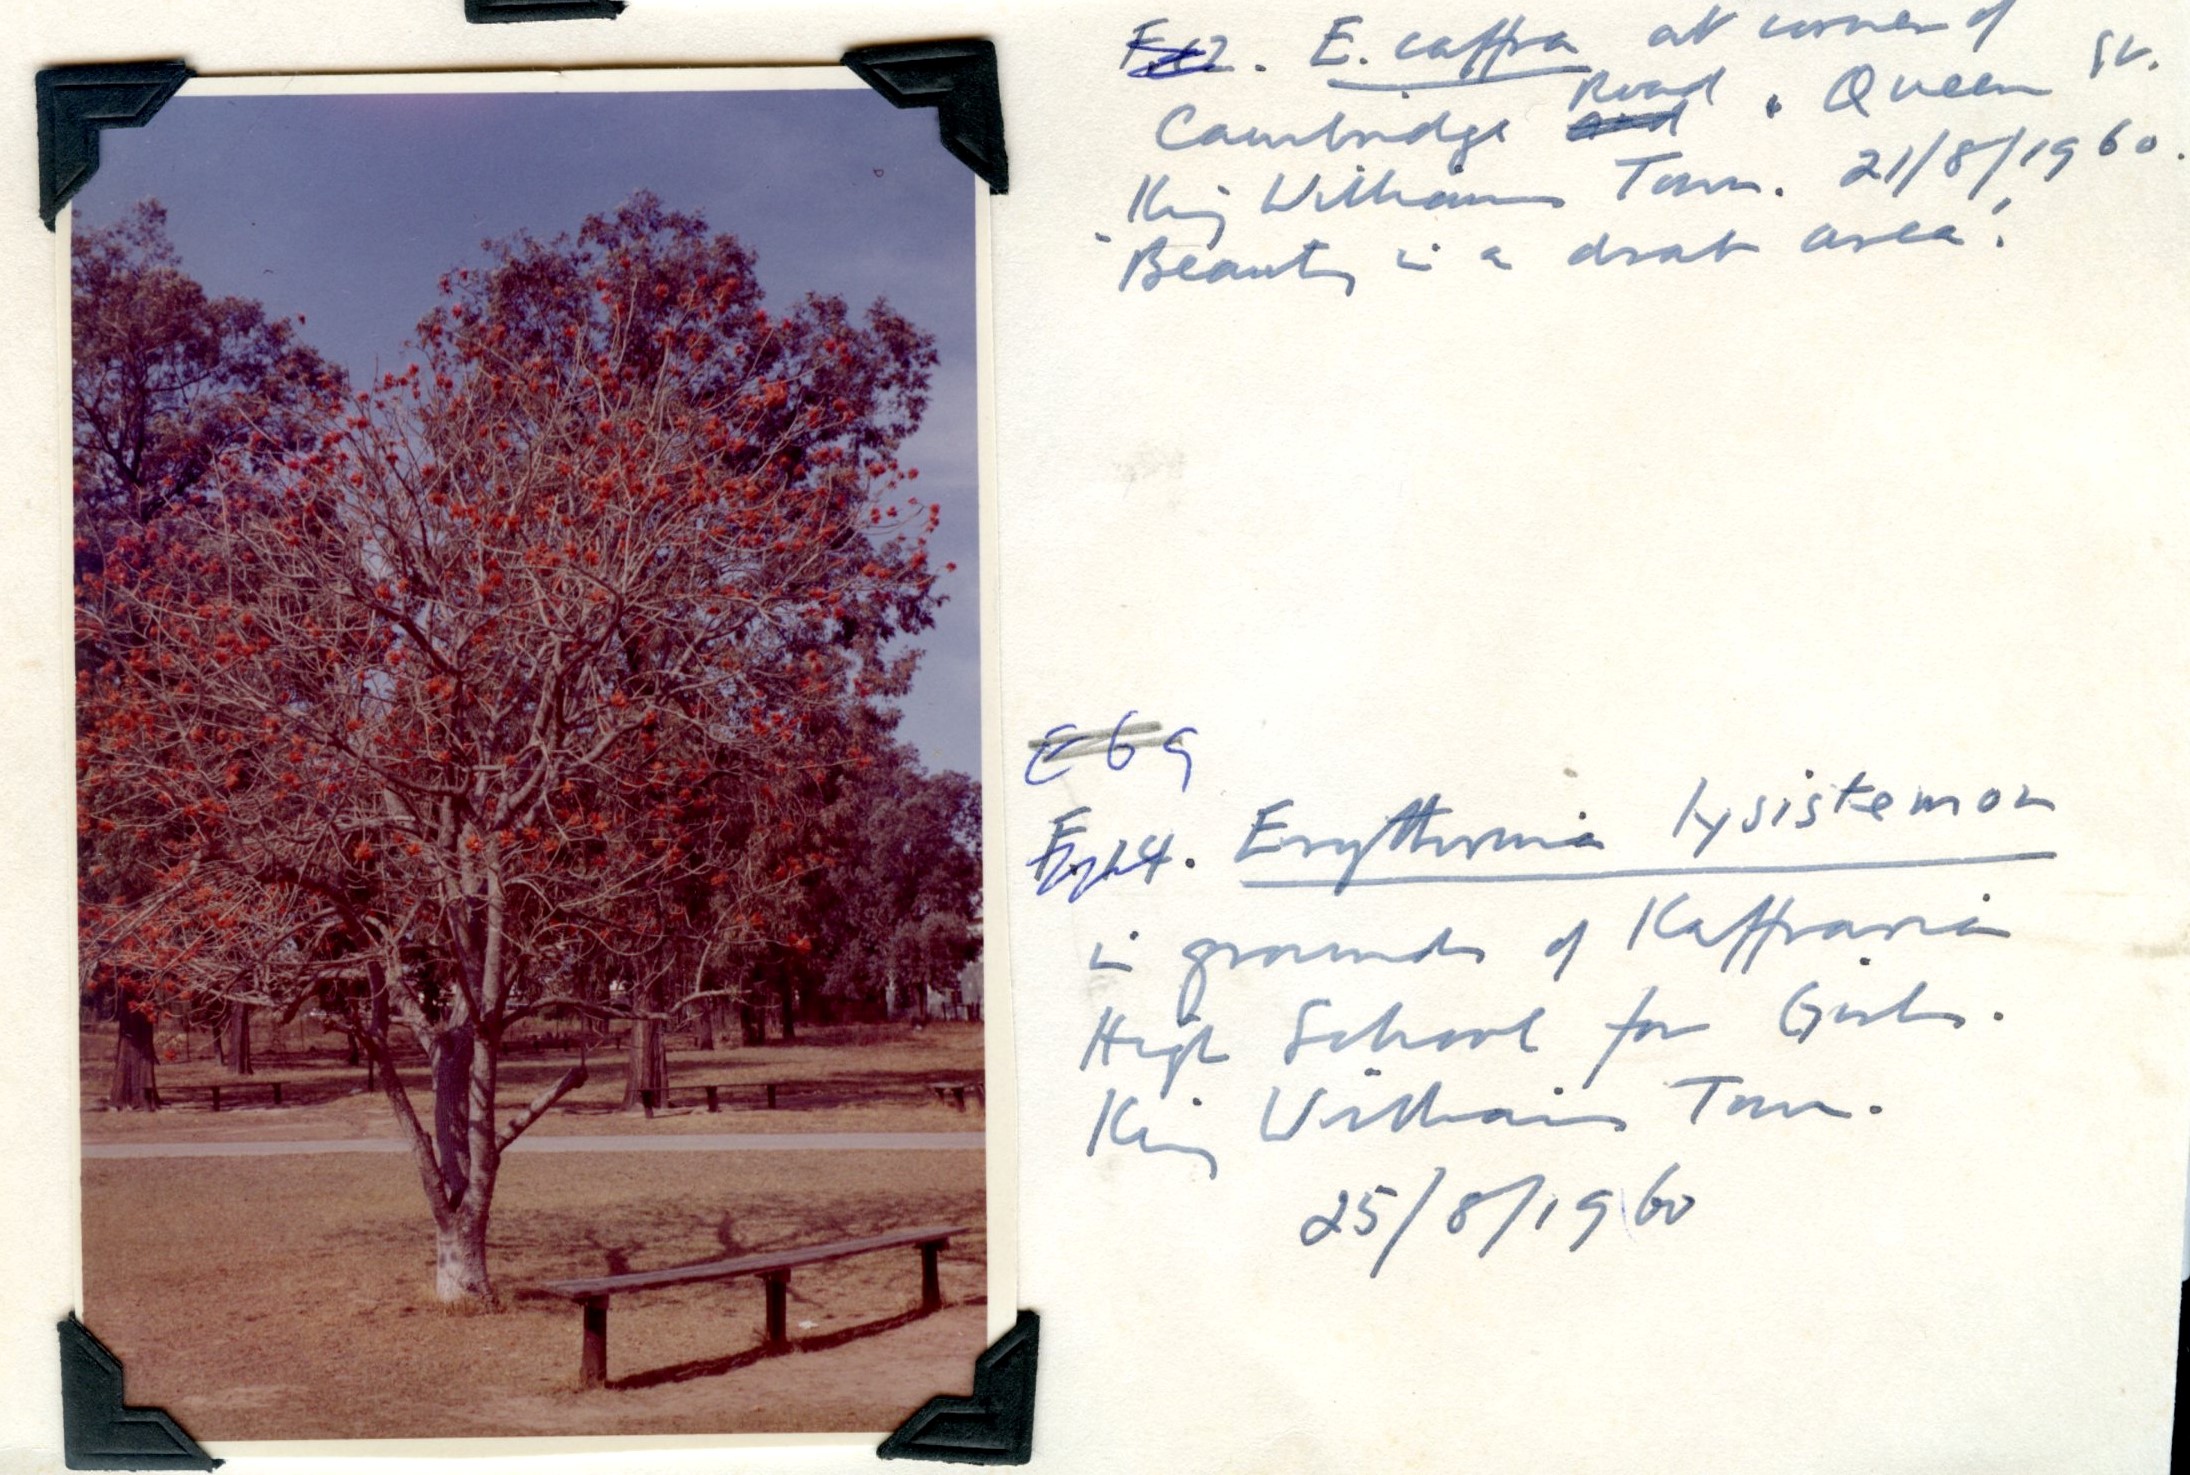 E. caffra at corner of
Cambridge Road & Queen St.
King Williams Town. 21/8/1960.
"Beauty in a drab area".
E 69
14. Erythrina lysistemon
in grounds of Kaffrarian
High School for Girls.
King Williams Town.
25/8/1960